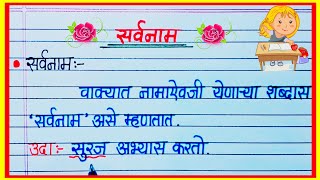 सर्वनाम
सर्वनाम:-
वाक्यात नामाऐवजी येणाऱ्या शब्दास
'सर्वनाम' असे म्हणतात.
उदा:- सुरज अभ्यास करतो.